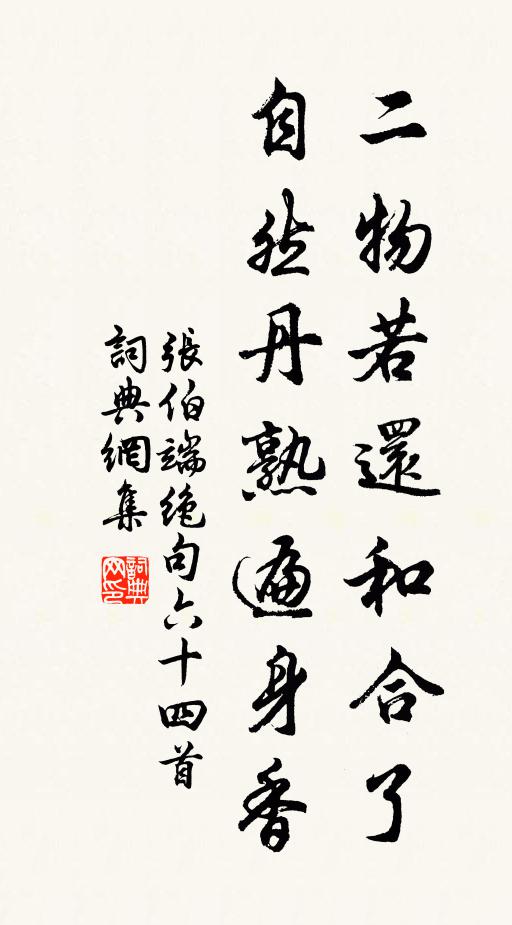 二物若還和合了
自然丹熟遍身香
張伯端絶句六十四首
詞典網集
詞典网印